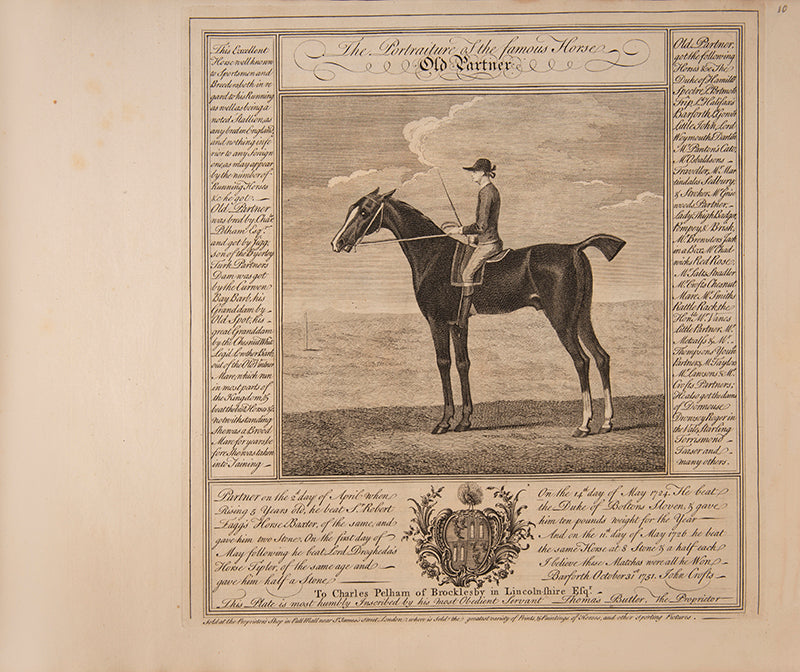 10
The Portraiture of the famous Horse
Old Partner
This Excellent
Horse well known
to Sportsmen and
Breeders both in re
gard to his Running
as well as being a
noted Stallion, as
any bred in England,
and nothing infe
rior to any Foreign
one, as may appear
by the number of
Running Horses
&c he got.
Old Partner
was bred by Chas.
Pelham Esqr.
and got by Jigg,
son of the Byerley
Turk. Partners
Dam was got
by the Curwen
Bay Barb, his
Granddam by
Old Spot, his
great Granddam
by the Chesnut White
Legd. Lowther Barb,
out of the Old Vintner
Mare, which run
in most parts of
the Kingdom, &
beat the best Horses &
notwithstanding
She was a Brood
Mare for years be
fore She was taken
into Taining
Old Partner,
got the following
Horses &c The
Duke of Hamilt
Spectre, Ld. Portmore
Trip, Ld. Halifax's
Barforth, Ld. Gowers
Little John, Lord
Weymouths Dartith
Mr. Panton's Cato,
Mr. Obaldsons
Traveller, Mr. Mar
tindales Sedbury,
& Stroker, Mr. Gris
woods Partner,
Lady Thigh, Badger,
Pompey, & Brisk,
Mr. Brewsters Jack
in a Box, Mr. Chad
wicks Red Rose,
Mr. Salts Snadler
Mr. Crofts Chesnut
Mare, Mr. Smiths
Rattle Rack, the
Honble. Mr. Vanes
Little Partner, Mr.
Metcalfs & Mr.
Thompsons Young
Partner, Mr. Taylors
Mr. Lansons & Mr.
Crofts Partners;
He also got the dams
of Dormouse
Dromsey, Roger in
the Vale, Starling
Torrismond
Teaser and
many others.
Partner on the 2d. day of April when
Rising 5 Years old, he beat Sr. Robert
Faggs Horse Baxter, of the same, and
gave him two Stone. On the first day of
May following he beat Lord Drogheda's
Horse Tipler, of the same age and
gave him half a Stone
On the 14th. day of May 1724. He beat
the Duke of Boltons Sloven, & gave
him ten pounds weight for the Year
And on the 11th. day of May 1726 he beat
the same Horse at 8 Stone & a half each
I believe these Matches were all he Won
Barforth October 31st. 1751. John Crofts
To Charles Pelham of Brocklesby in Lincoln-shire Esqr.
This Plate is most humbly Inscribed by his most Obedient Servant Thomas Butler, The Proprietor
Sold at the Proprietors Shop in Pall Mall near St. James's Street, London; where is Sold the greatest variety of Prints, & Paintings of Horses, and other Sporting Pictures.